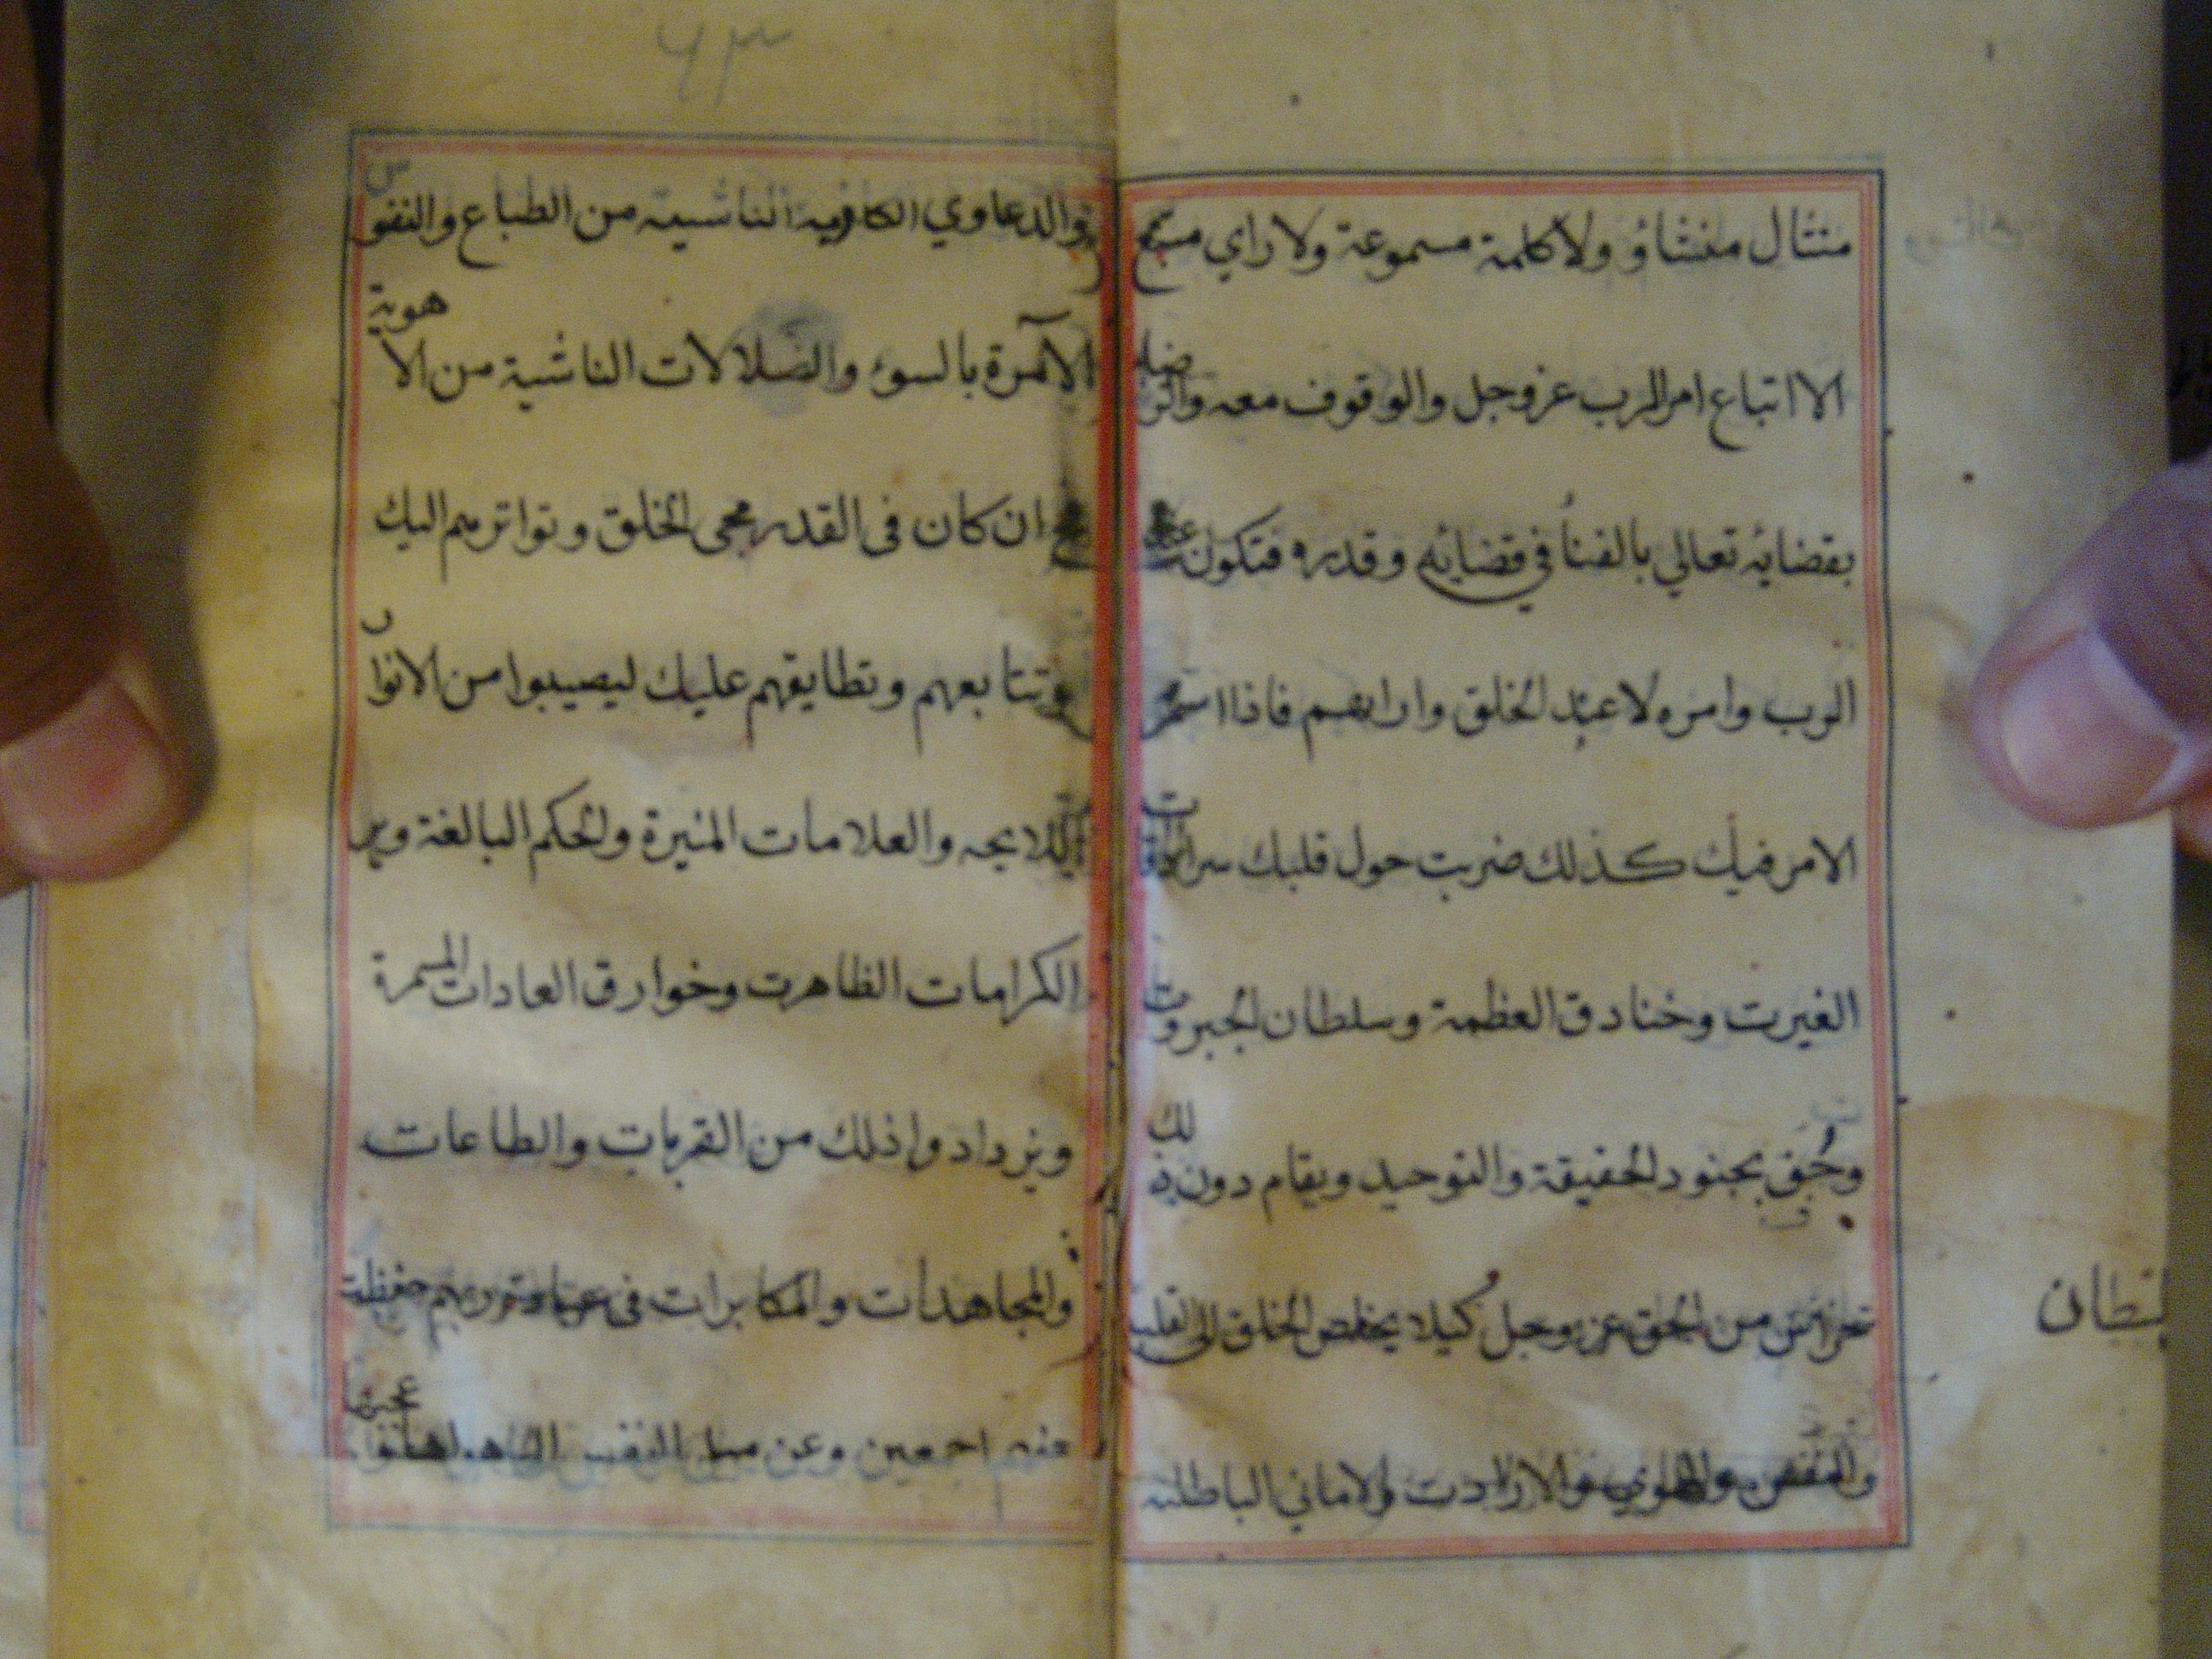 منثال منشاؤ ولا كلمة مسموعة ولا راي متبع
الا اتباع امر الرب عز وجل والوقوف معه والرضاء
بقضائه تعالي بالفنأ في قضائه وقدره فتكون عبد
الرب وامره لا عبد الخلق وارايهم فاذا استمر
الامر فيك كذلك ضربت حول قلبك سرادقات
الغيرت وخنادق العظمة وسلطان الجبروت
وحُفّ بجنود الحقيقة والتوحيد ويقام دون ذلك
من الحق عز وجل كيلا يخلص الخلق الى القلب
والارادت والاماني الباطلة
يطان
٦٣
والدعاوي الكاذبة الناشية من الطباع والنفوس
الآمرة بالسوء والضلالات الناشية من الاهوية
ان كان فى القدر مجى الخلق وتواترهم اليك
وتتابعهم وتطابقهم عليك ليصيبوا من الانوار
اللايحه والعلامات المنيرة والحكم البالغة ويرو
الكرامات الظاهرت وخوارق العادات المسمرة
ويزدادوا ذلك من القربات والطاعات
والمجاهدات والمكابرات فى حفظت
عنهم اجمعين وعن ميل النفس